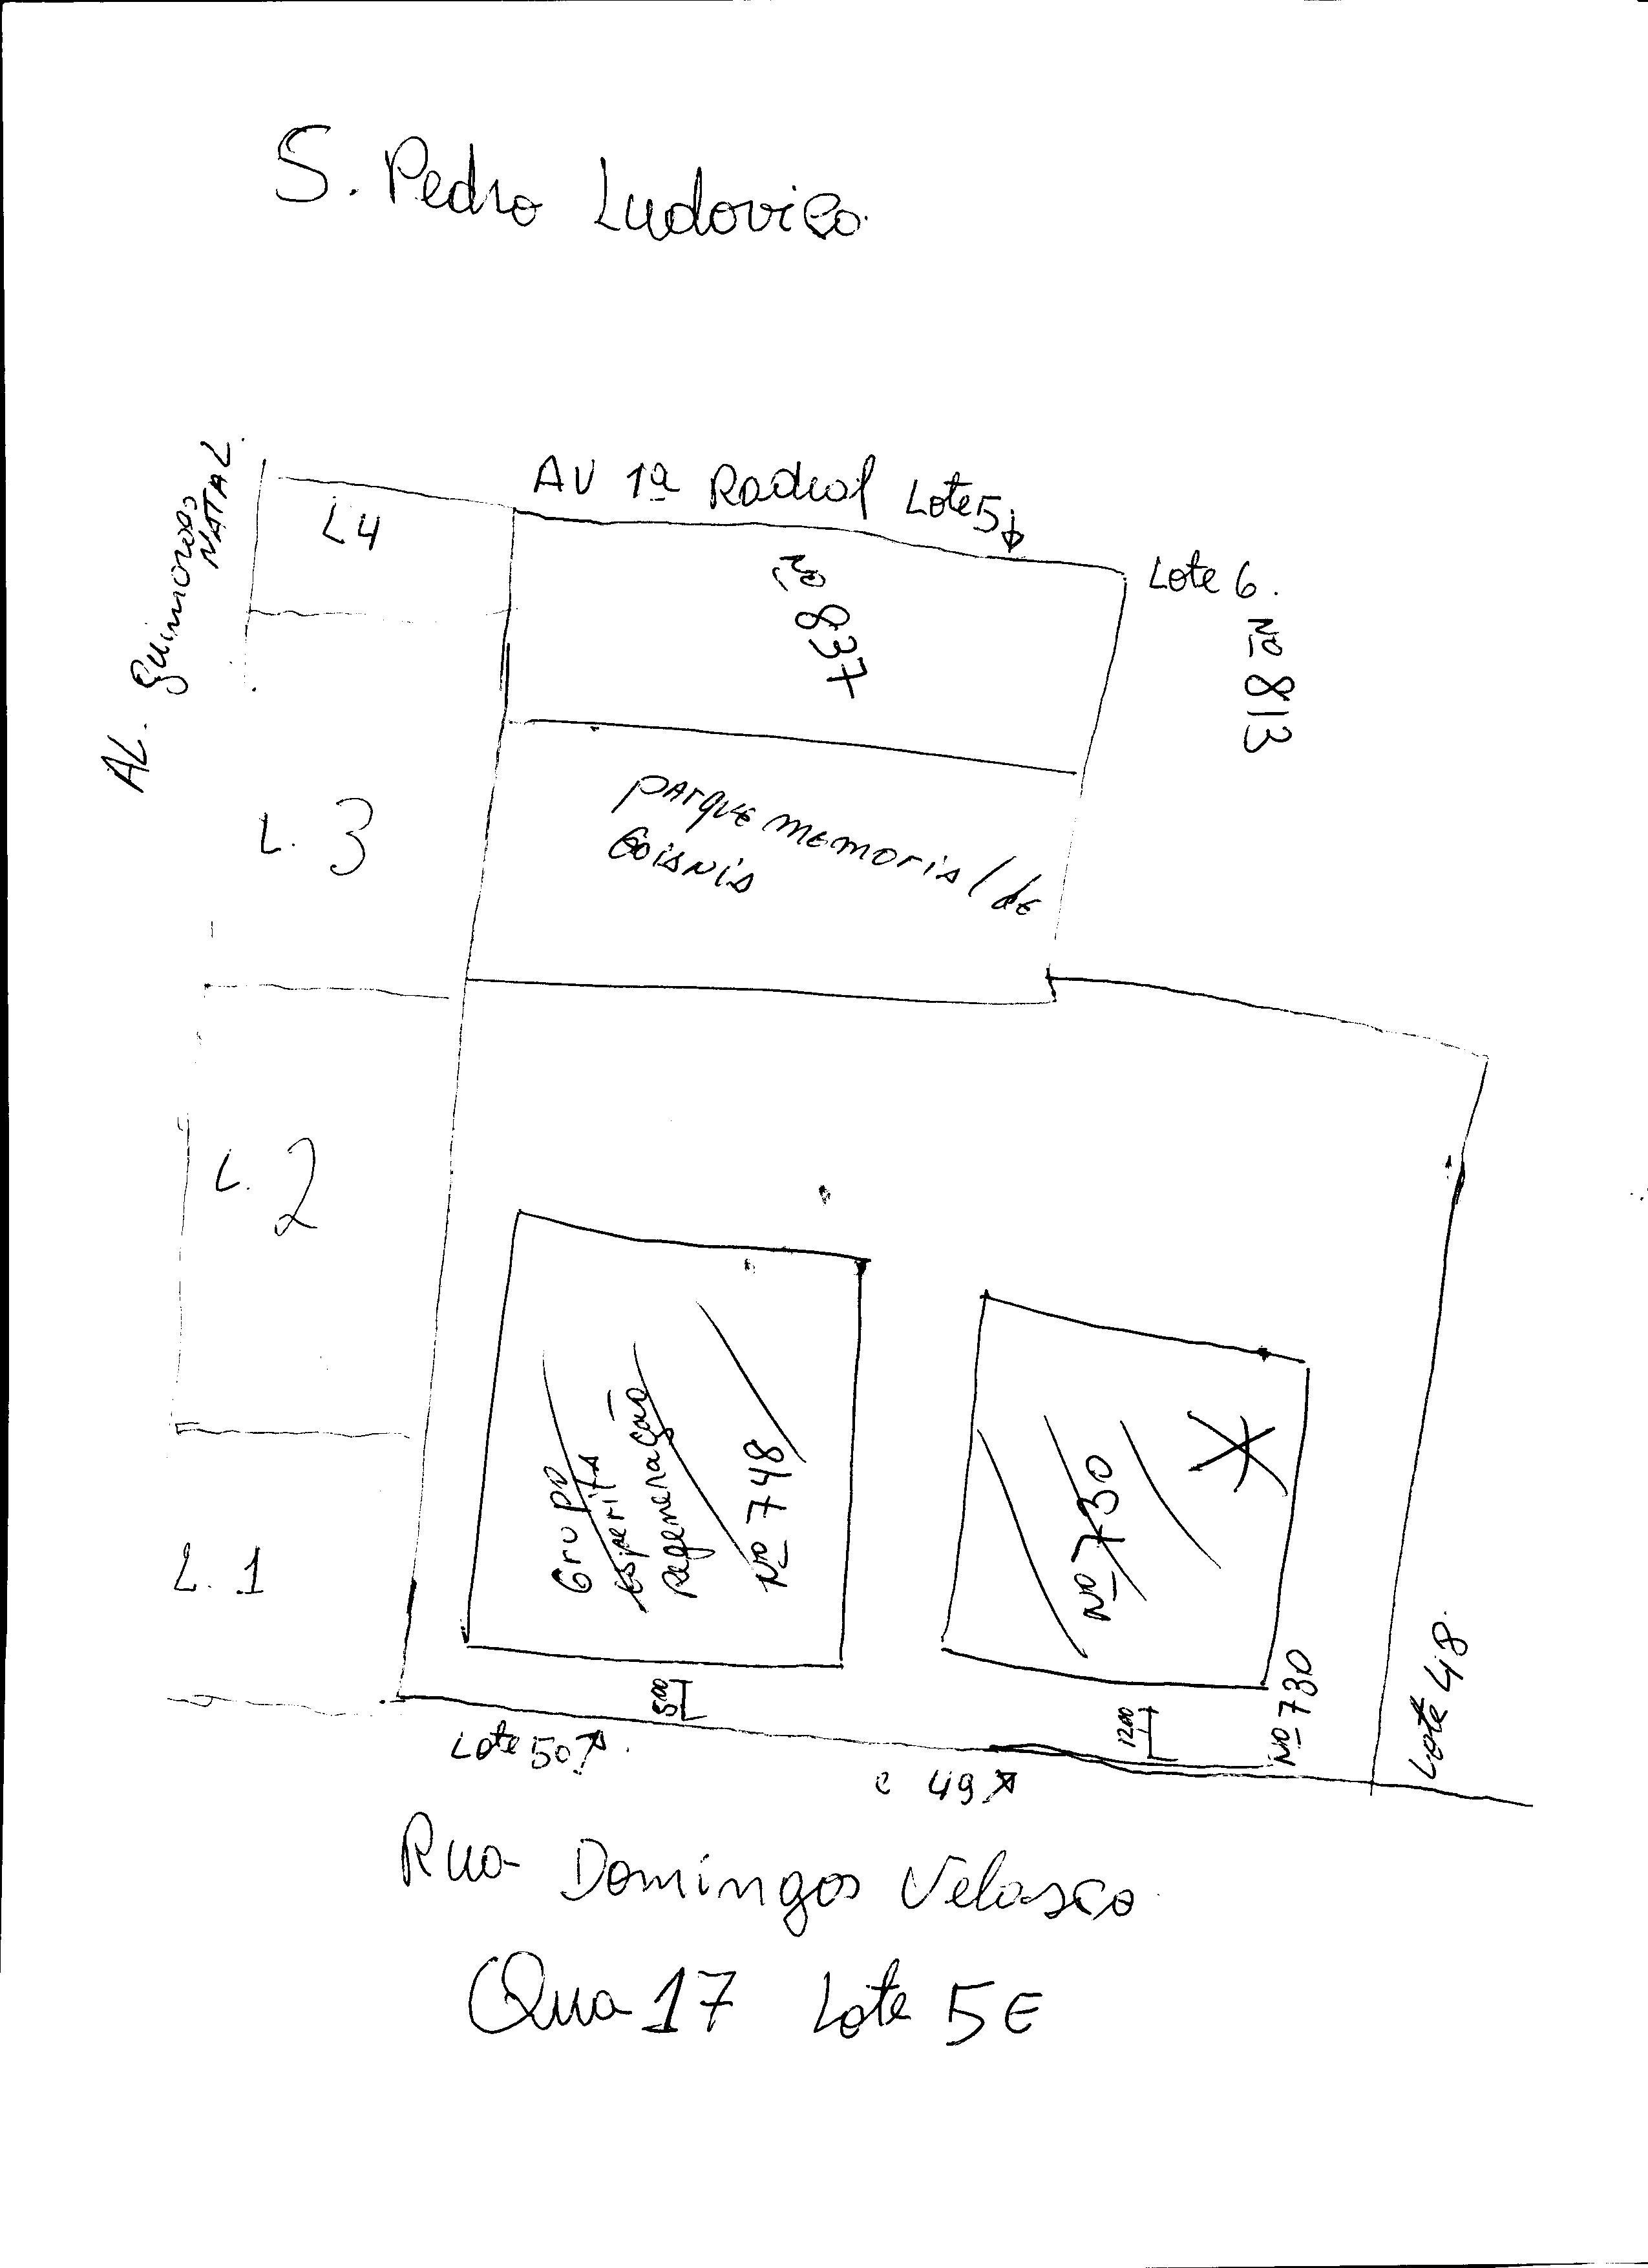 S. Pedro Ludovico.
AV 1ª Radial Lote 5
L4
AL. Guimarães
NATAL.
Nº 837
Lote 6.
Nº 813
L. 3
PArque memorial de
Goiania
L. 2
Grupo
esperita
Regeneração
Nº 748
Nº 730
L. 1
500
1200
Nº 730
Lote 48.
Lote 50
e 49
Rua Domingos Velasco
Qua 17 Lote 5E